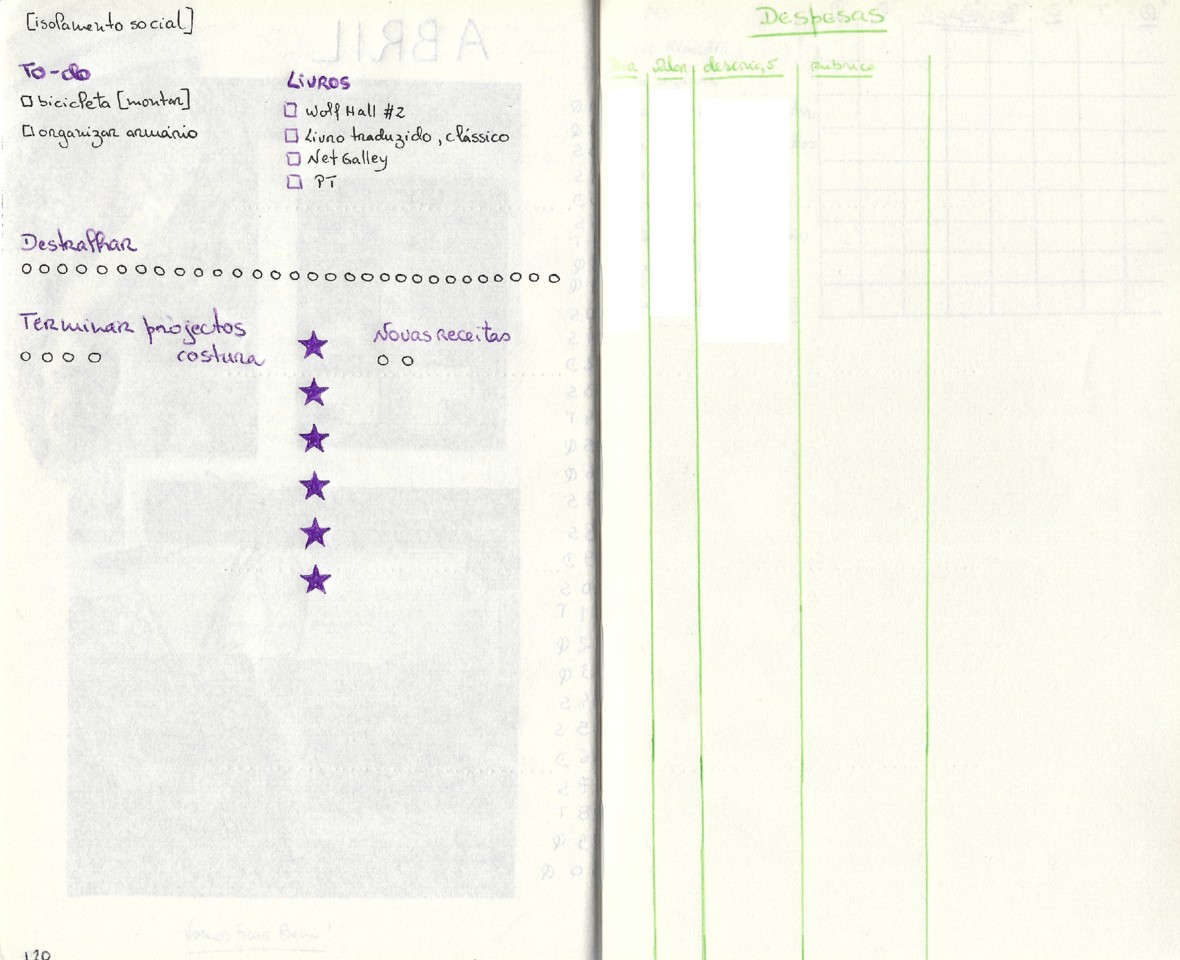 [isolamento social]
To-do
bicicleta [montar]
organizar armário
Livros
Wolf Hall #2
Livro traduzido, clássico
NetGalley
PT
Destralhar
Terminar projectos
costura
Novas receitas
120
Despesas
Dia Valor descrição rubrica
ABRIL
Vamos ficar Bem!